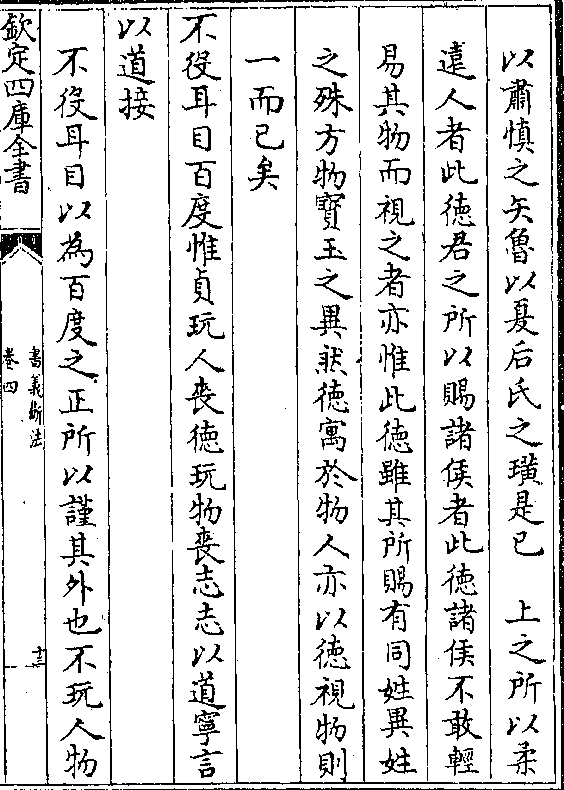 以肅慎之矢魯以夏后氏之璜是已　上之所以柔
遠人者此徳君之所以賜諸侯者此徳諸侯不敢輕
易其物而視之者亦惟此徳雖其所賜有同姓異姓
之殊方物寳玉之異然徳寓於物人亦以徳視物則
一而已矣
不役耳目百度惟貞玩人喪徳玩物喪志志以道寧言
以道接
不役耳目以為百度之正所以謹其外也不玩人物
欽定四庫全書
書義斷法
卷四
十三